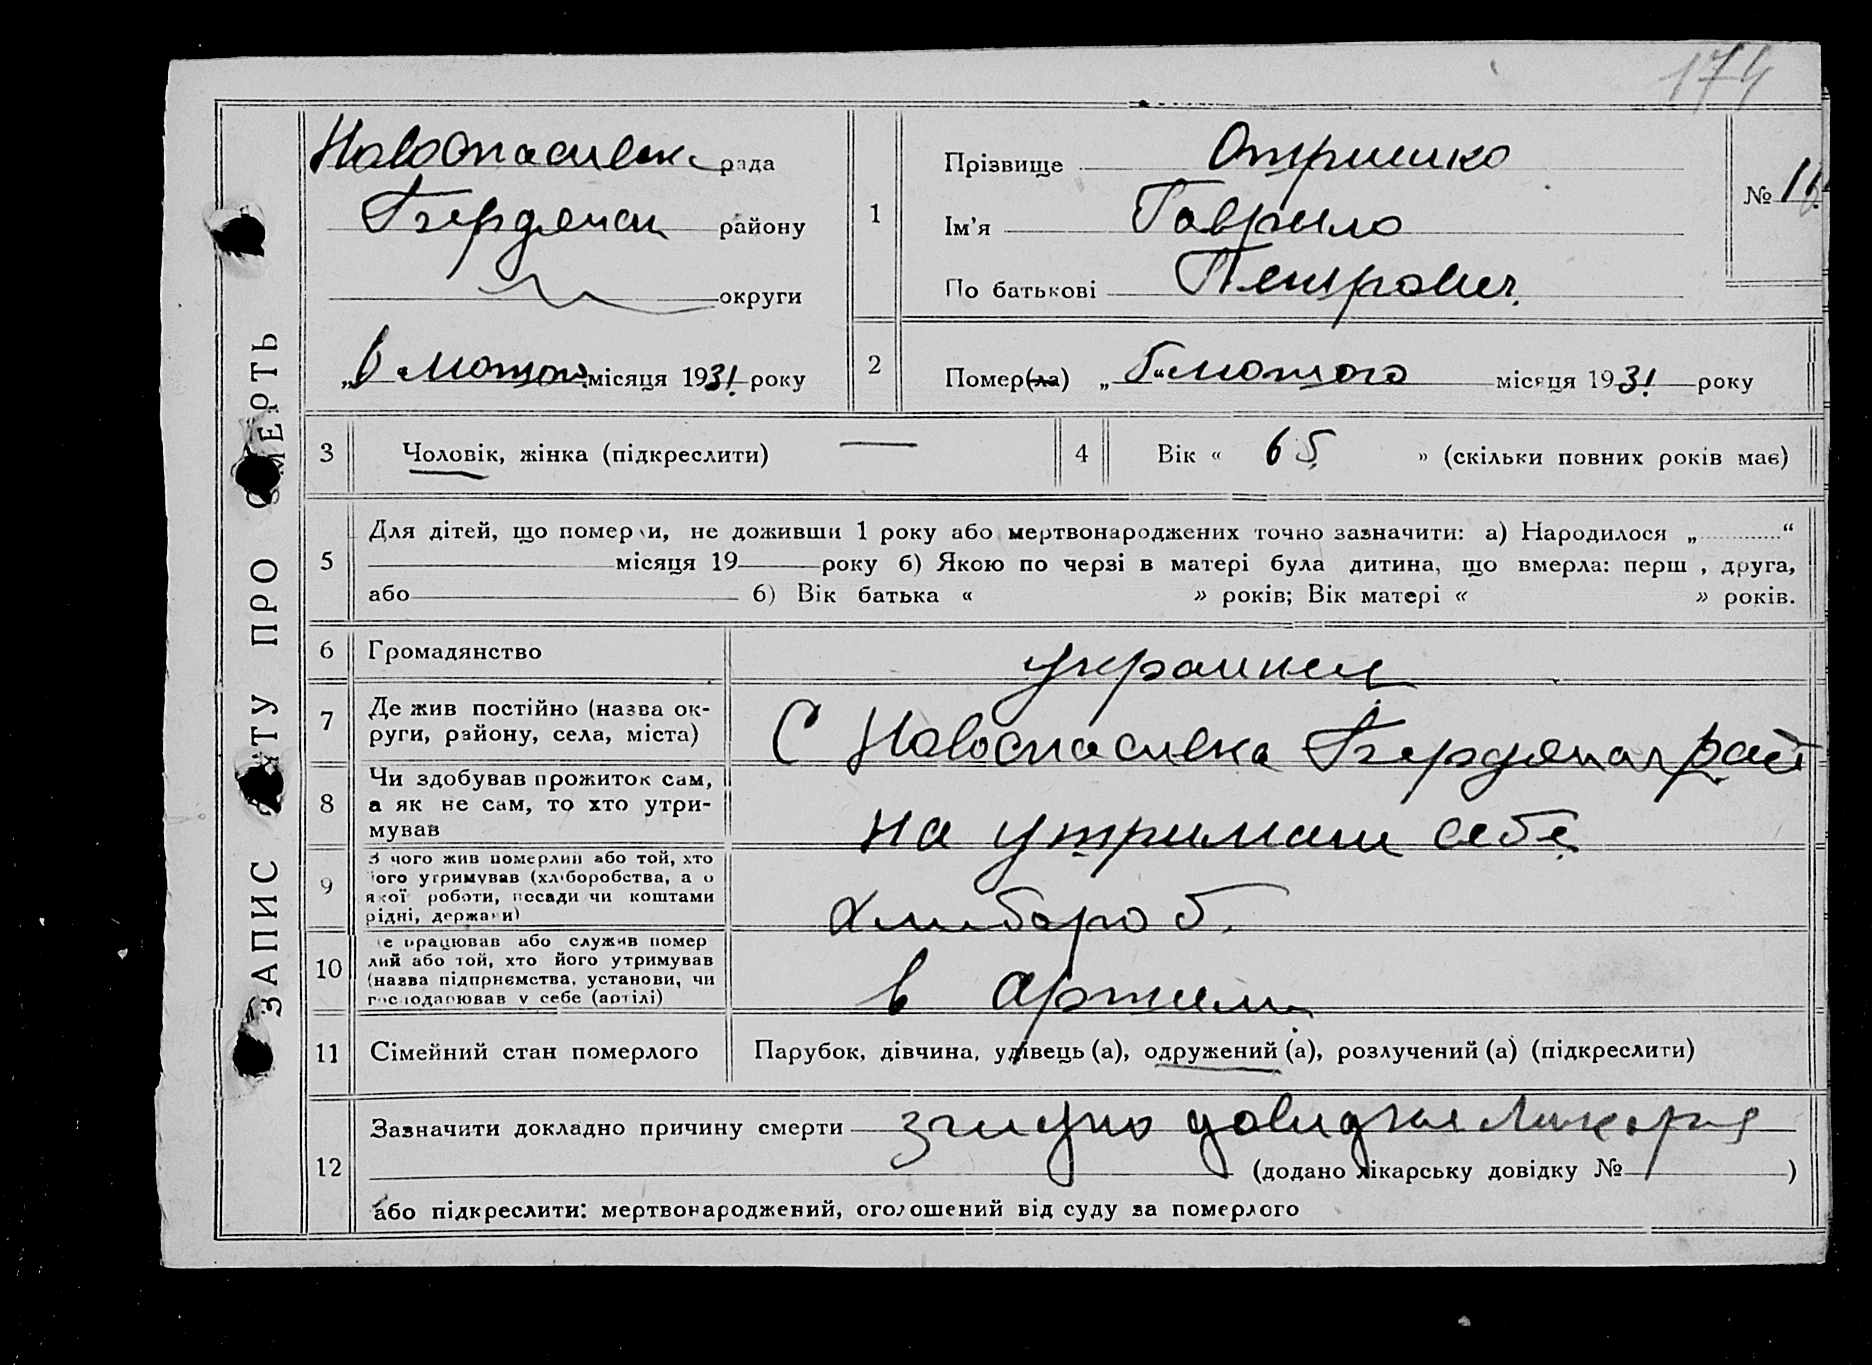 174
ЗАПИС АКТУ ПРО СМЕРТЬ
Новоспасивска рада
Бердянск району
округи
„6“ лютого місяця 1931 року
1
Прізвище Отришко
Ім'я Гаврыло
По батькові Петрович.
№ 16
2
Помер(ла) „5“ лютого місяця 1931 року
3
Чоловік, жінка (підкреслити) —
4
Вік « 65 » (скільки повних років має)
5
Для дітей, що померли, не доживши 1 року або мертвонароджених точно зазначити: а) Народилося „ “
місяця 19 року б) Якою по черзі в матері була дитина, що вмерла: перш , друга,
або б) Вік батька « » років; Вік матері « » років.
6
Громадянство
украинец
7
Де жив постійно (назва ок-
руги, району, села, міста)
С Новоспасивка Бердянск рай
8
Чи здобував прожиток сам,
а як не сам, то хто утри-
мував
на утримани себе
9
З чого жив померлий або той, хто
його утримував (хліборобства, а о
якої роботи, посади чи коштами
рідні, держави)
хлибороб.
10
е працював або служив помер
лий або той, хто його утримував
(назва підприємства, установи, чи
господарював у себе (артілі)
в артили
11
Сімейний стан померлого
Парубок, дівчина, удівець (а), одружений (а), розлучений (а) (підкреслити)
12
Зазначити докладно причину смерти згидно довидки Ликаря
(додано лікарську довідку № )
або підкреслити: мертвонароджений, оголошений від суду за померлого